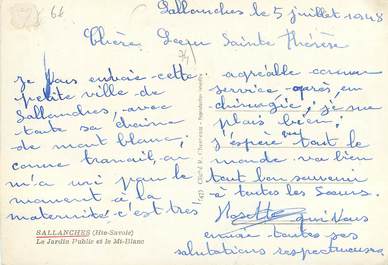 Sallanches le 5 juillet 1948
Chère Soeur Sainte Thérèse
je vous envoie cette
petite ville de
Sallanches, avec
toute sa chaine
de mont blanc,
comme travail, on
m'a mis pour le
moment à la
maternité c'est très
agréable comme
service après en
chirurgie, je me
plais bien;
j'espère que tout le
monde va bien
tout bon souvenir
à toutes les Soeurs.
Mosette qui Vous
envoie toutes ses
salutations respectueuses
SALLANCHES (Hte-Savoie)
Le Jardin Public et le Mt-Blanc